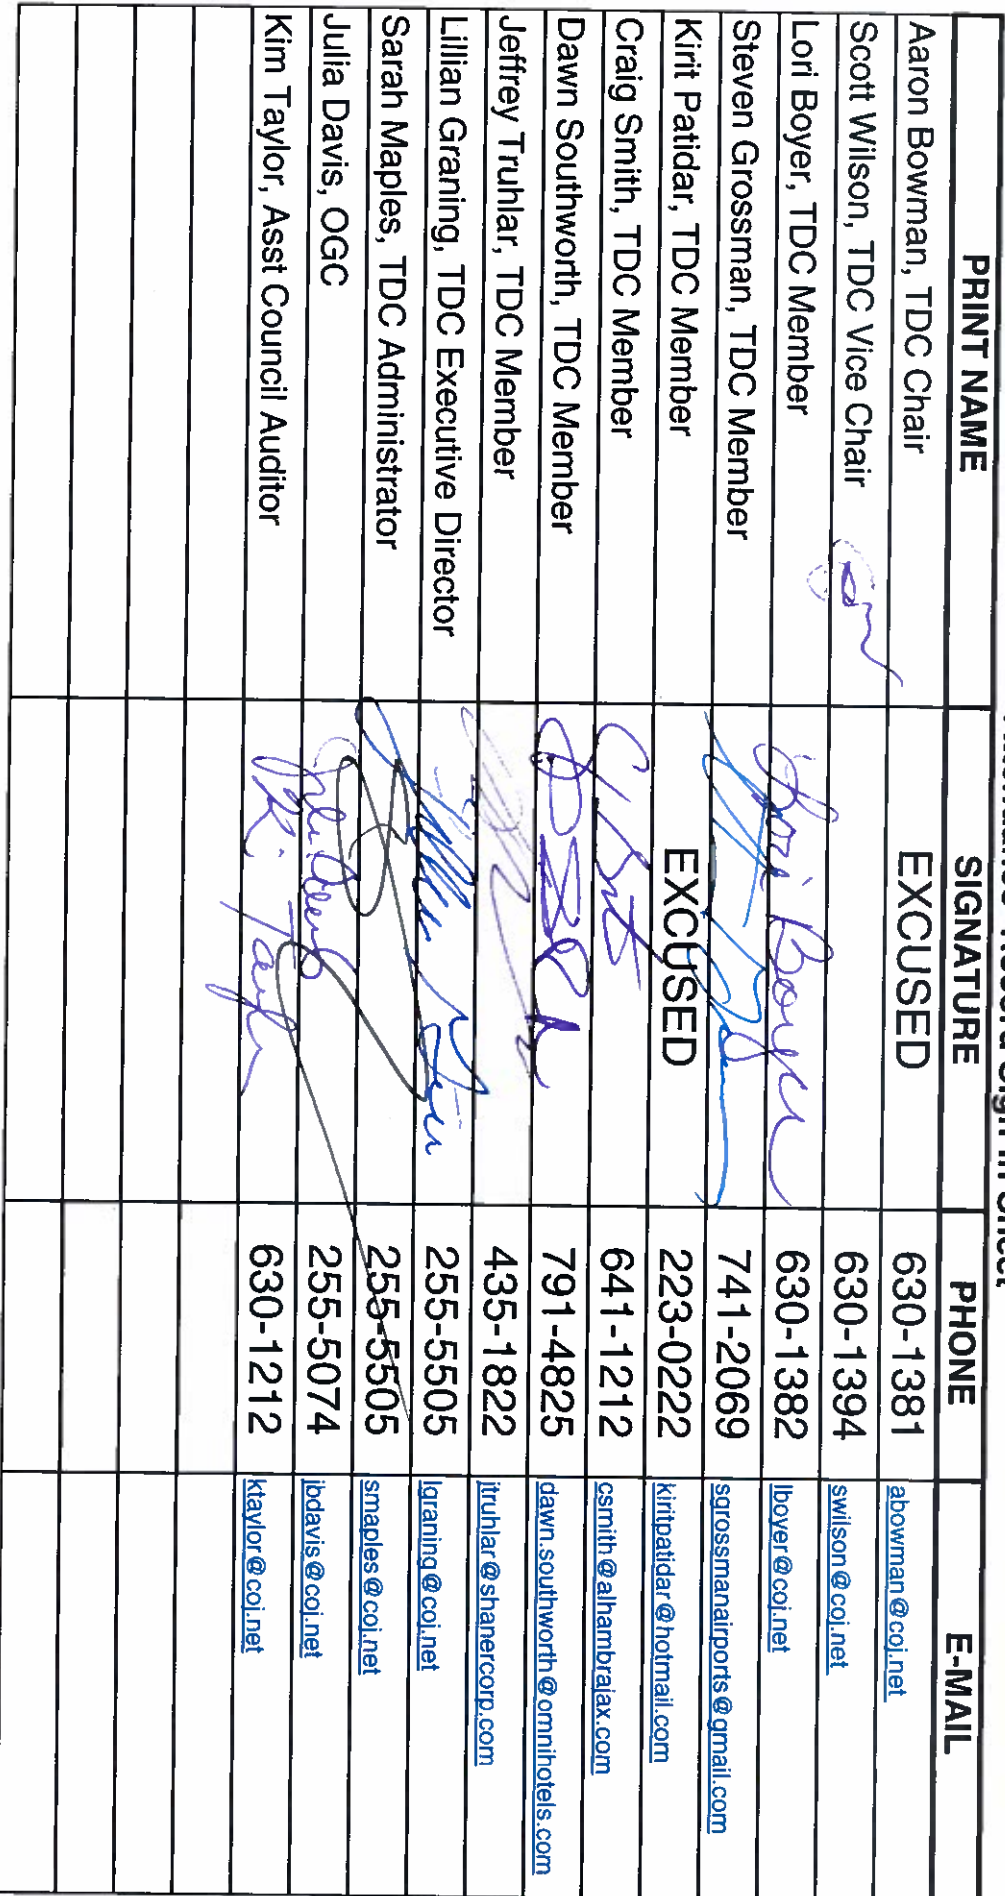 Sign In Sheet
PRINT NAME SIGNATURE PHONE E-MAIL
Aaron Bowman, TDC Chair EXCUSED 630-1381 abowman@coj.net
Scott Wilson, TDC Vice Chair 630-1394 swilson@coj.net
Lori Boyer, TDC Member Lori Boyer 630-1382 lboyer@coj.net
Steven Grossman, TDC Member 741-2069 sgrossmanairports@gmail.com
Kirit Patidar, TDC Member EXCUSED 223-0222 kiritpatidar@hotmail.com
Craig Smith, TDC Member 641-1212 csmith@alhambrajax.com
Dawn Southworth, TDC Member 791-4825 dawn.southworth@omnihotels.com
Jeffrey Truhlar, TDC Member 435-1822 jtruhlar@shanercorp.com
Lillian Graning, TDC Executive Director 255-5505 lgraning@coj.net
Sarah Maples, TDC Administrator 255-5505 smaples@coj.net
Julia Davis, OGC 255-5074 jbdavis@coj.net
Kim Taylor, Asst Council Auditor Ki Taylor 630-1212 ktaylor@coj.net